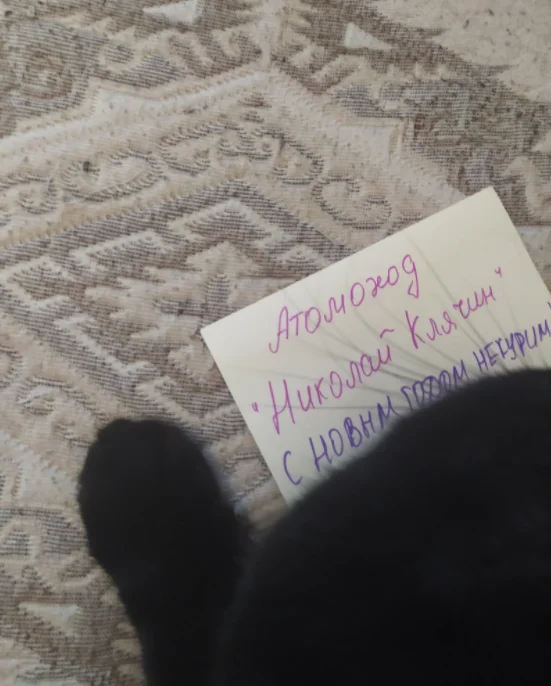 Атомоход
"Николай Клячин"
С НОВЫМ ГОДОМ НЕКУРИМ